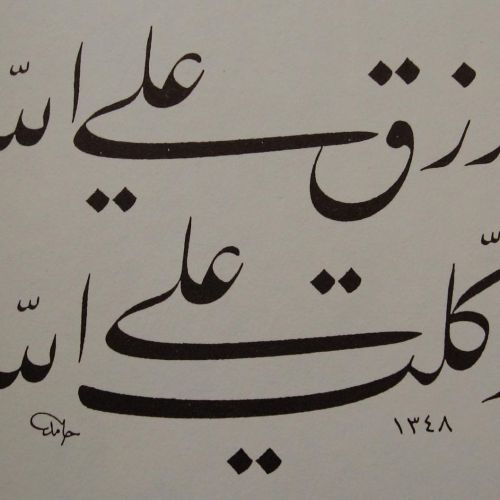 رزق علي الله
وكلت علي الله
حامد ١٣٤٨